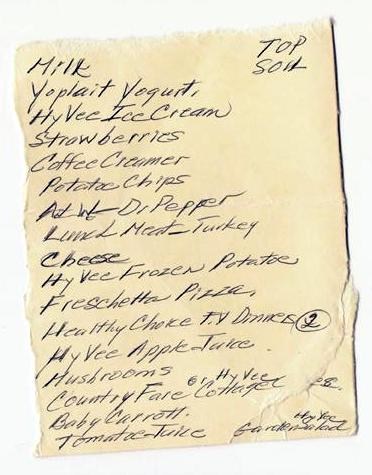 TOP
SOIL
Milk
Yoplait Yogurt.
HyVee Ice Cream
Strawberries
Coffee Creamer
Potatoe Chips
A+W - Dr Pepper
Lunch Meat - Turkey
Cheese
Hy Vee Frozen Potatoe
Freschetta Pizza.
Healthy Choice T.V Dinners 2
Hy Vee Apple Juice.
Mushrooms
Country Fare or Hy Vee Cottage
Baby Carrott.
Tomatoe Juice
Hy Vee
Garden Salad